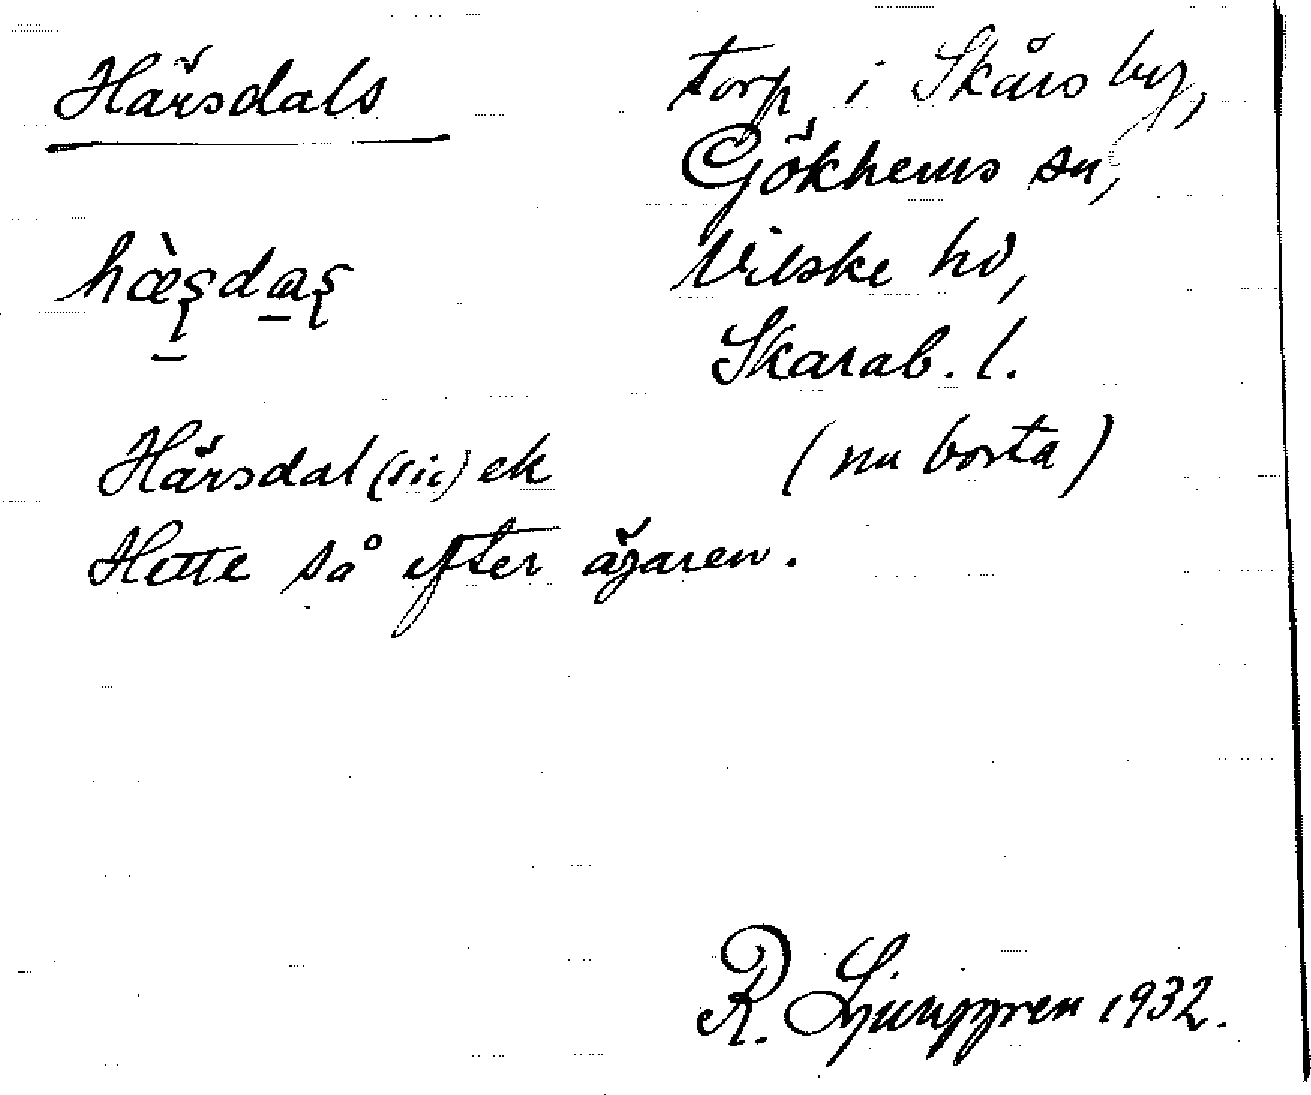 Härsdals
hæ̀ʂdaʂ
torp i Skårs by,
Gökhems sn,
Vilske hd,
Skarab. l.
(nu borta)
Härsdal (sic) ek
Hette så efter ägaren.
R. Ljunggren 1932.